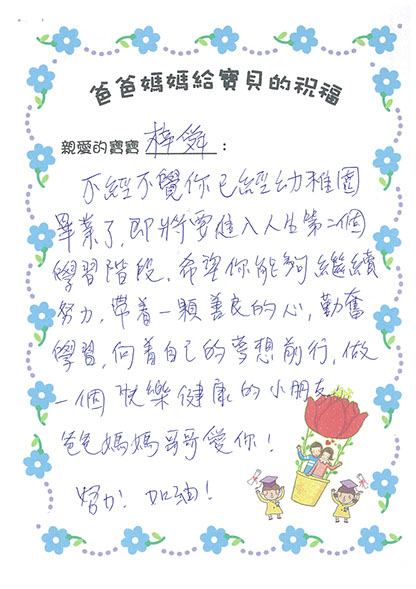 爸爸媽媽給寶貝的祝福
親愛的寶寶 梓舜 :
不經不覺你已經幼稚園
畢業了,即將要進入人生第二個
學習階段,希望你能夠繼續
努力,帶着一顆善良的心,勤奮
學習,向着自己的夢想前行,做
一個快樂健康的小朋友
爸爸媽媽哥哥愛你!
努力! 加油!